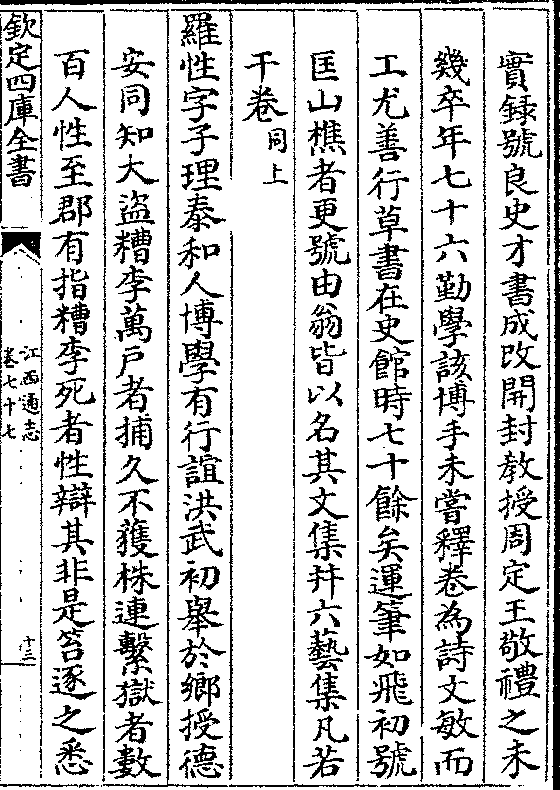 實録號良史才書成改開封教授周定王敬禮之未
幾卒年七十六勤學該博手未嘗釋卷為詩文敏而
工尤善行草書在史館時七十餘矣運筆如飛初號
匡山樵者更號由翁皆以名其文集并六藝集凡若
干卷同上
羅性字子理泰和人博學有行誼洪武初舉於鄉授德
安同知大盜糟李萬戸者捕久不獲株連繫獄者數
百人性至郡有指糟李死者性辯其非是笞逐之悉
欽定四庫全書
江西通志
卷七十七
十三